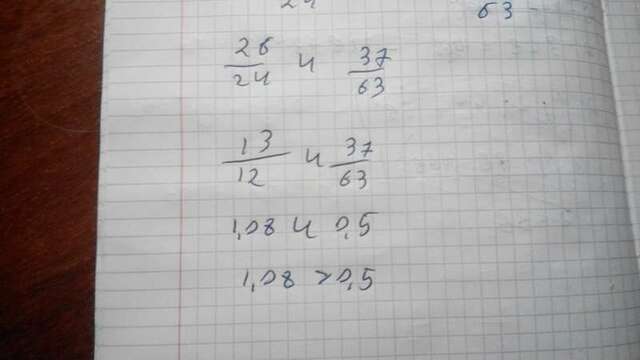 24 63
26/24 и 37/63
13/12 и 37/63
1,08 и 0,5
1,08 > 0,5